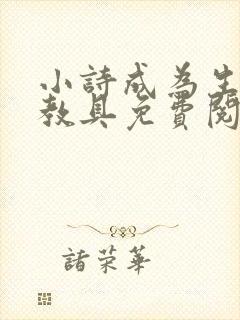 小詩成為生
教具免費閱
諸荣華